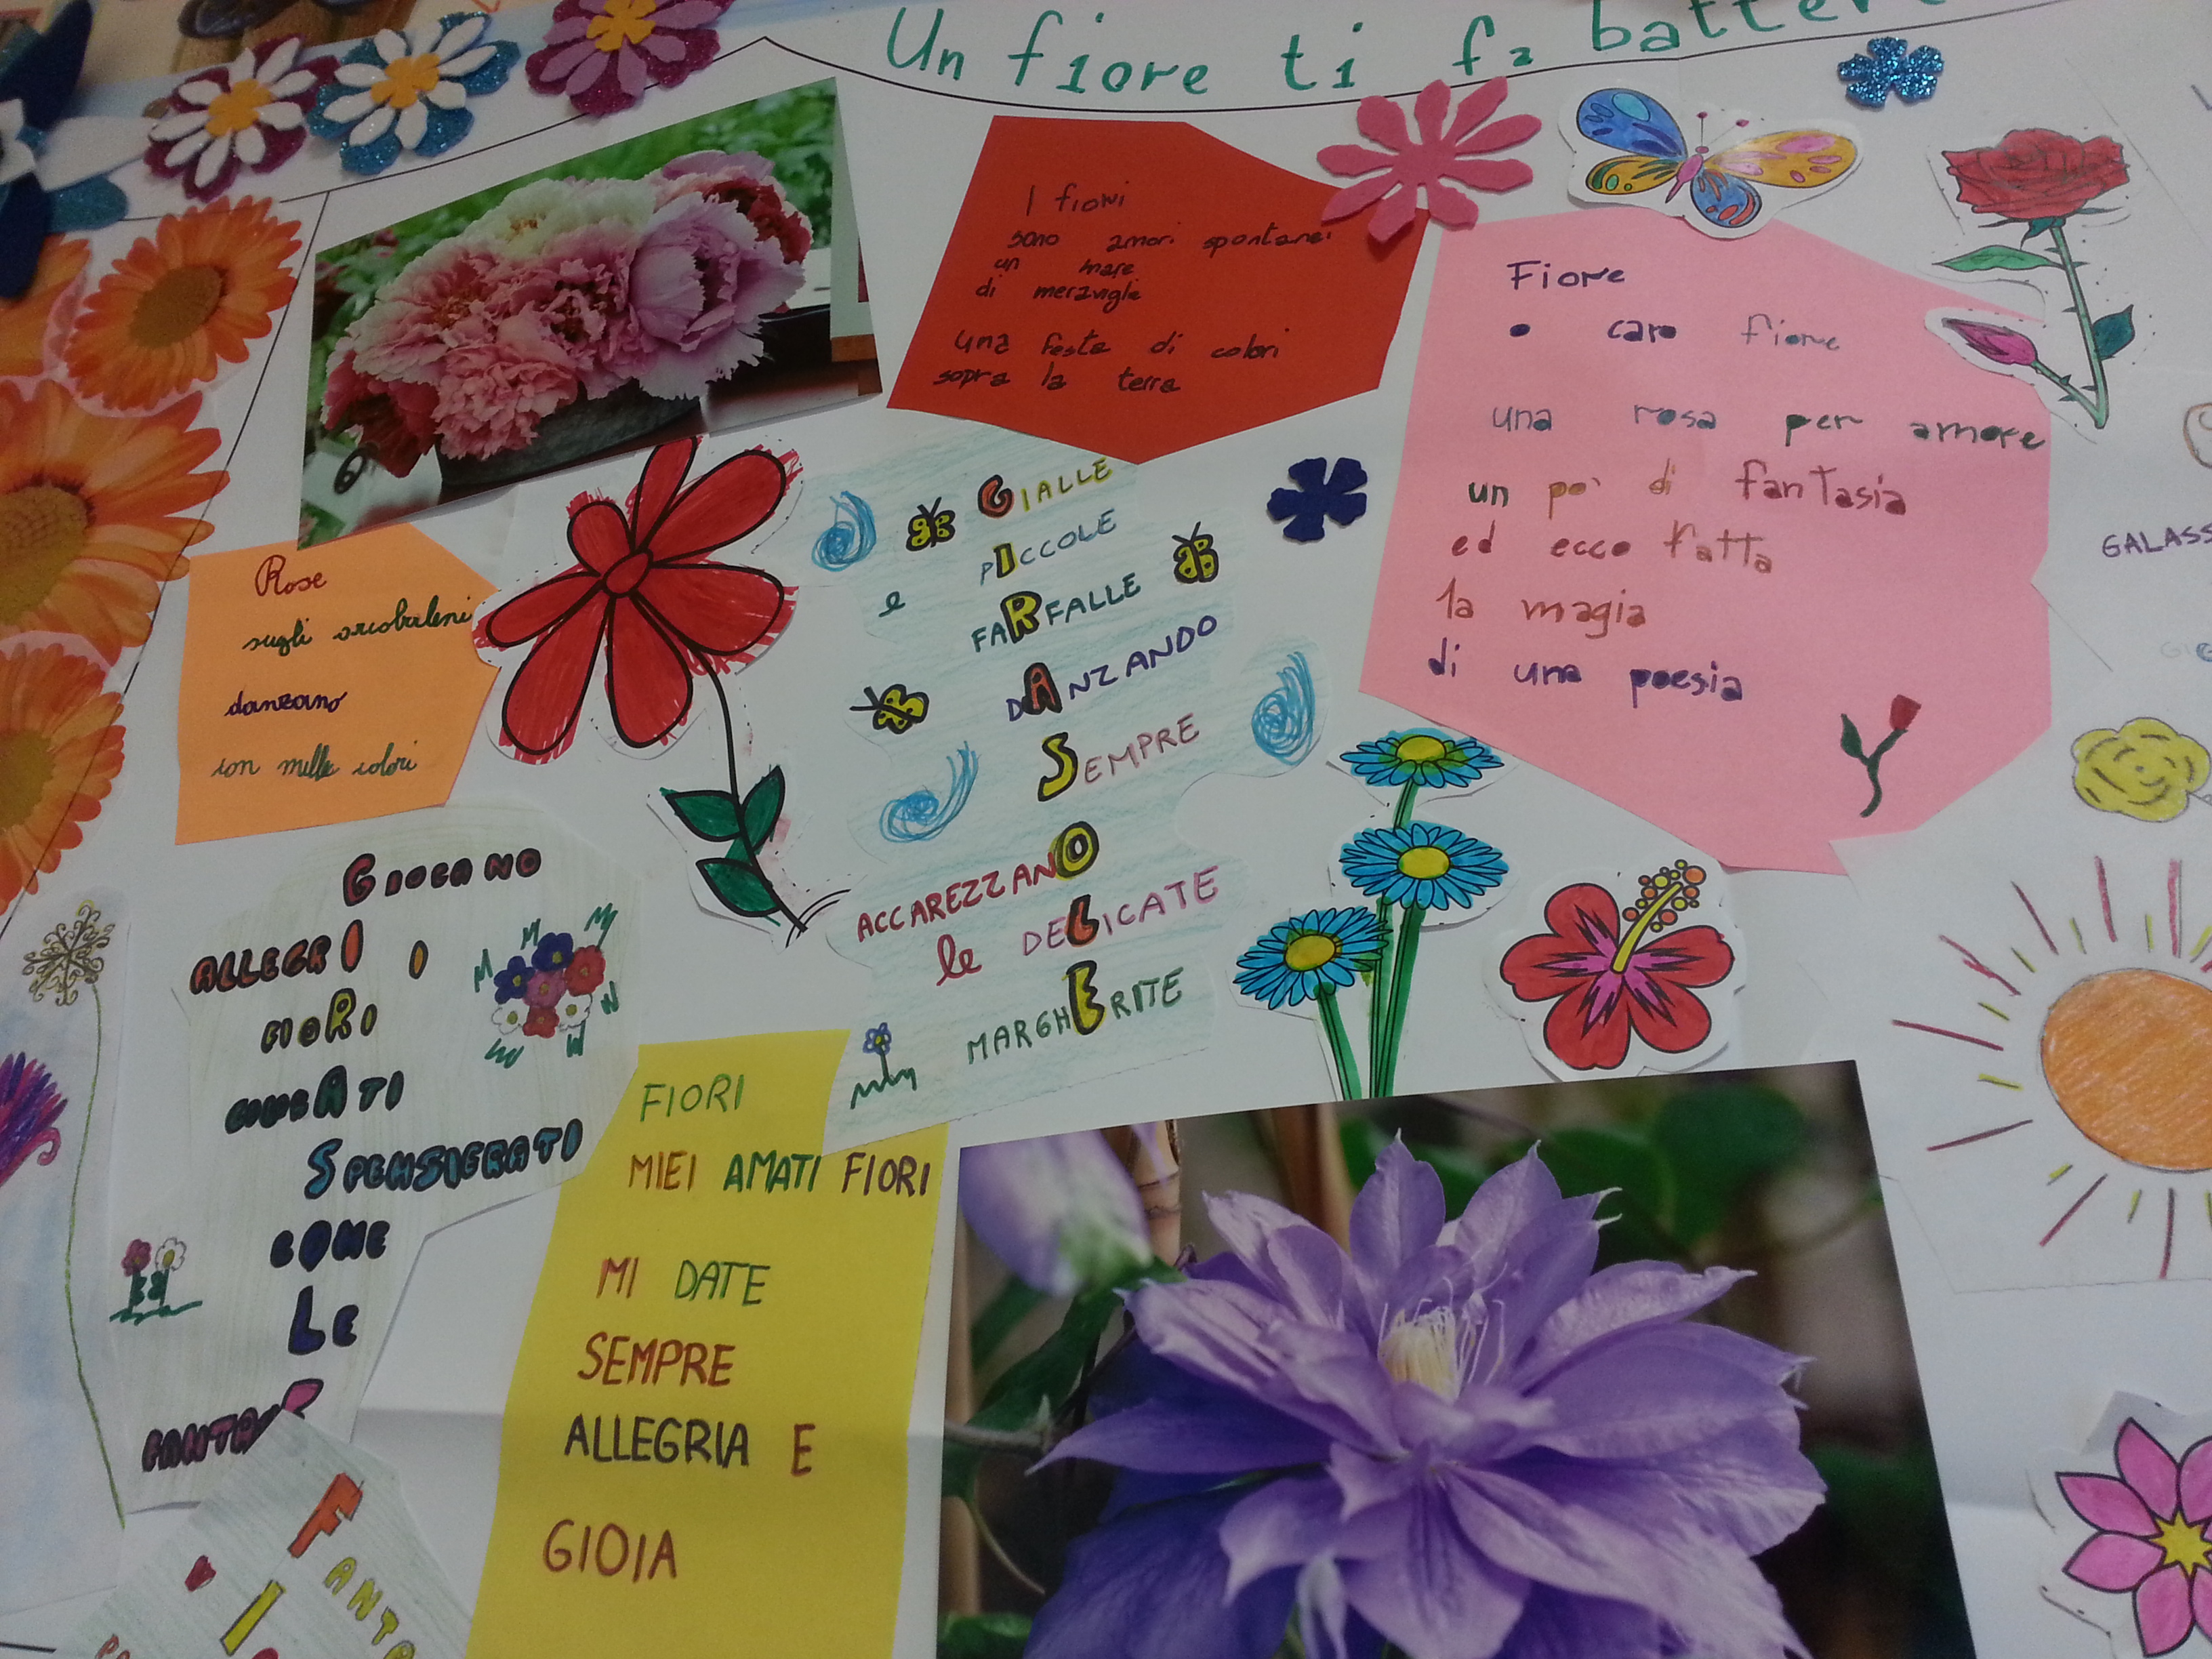 Un fiore ti fa
I fiori
sono amori spontanei
un mare
di meraviglie
una festa di colori
sopra la terra
Fiore
o caro fiore
una rosa per amore
un po' di fantasia
ed ecco fatta
la magia
di una poesia
GIALLE
e PICCOLE
FARFALLE
DANZANDO
SEMPRE
ACCAREZZANO
le DELICATE
MARGHERITE
Rose
sugli arcobaleni
danzano
con mille colori
GIOCANO
ALLEGRI I
FIORI
SPENSIERATI
COME
LE
FIORI
MIEI AMATI FIORI
MI DATE
SEMPRE
ALLEGRIA E
GIOIA